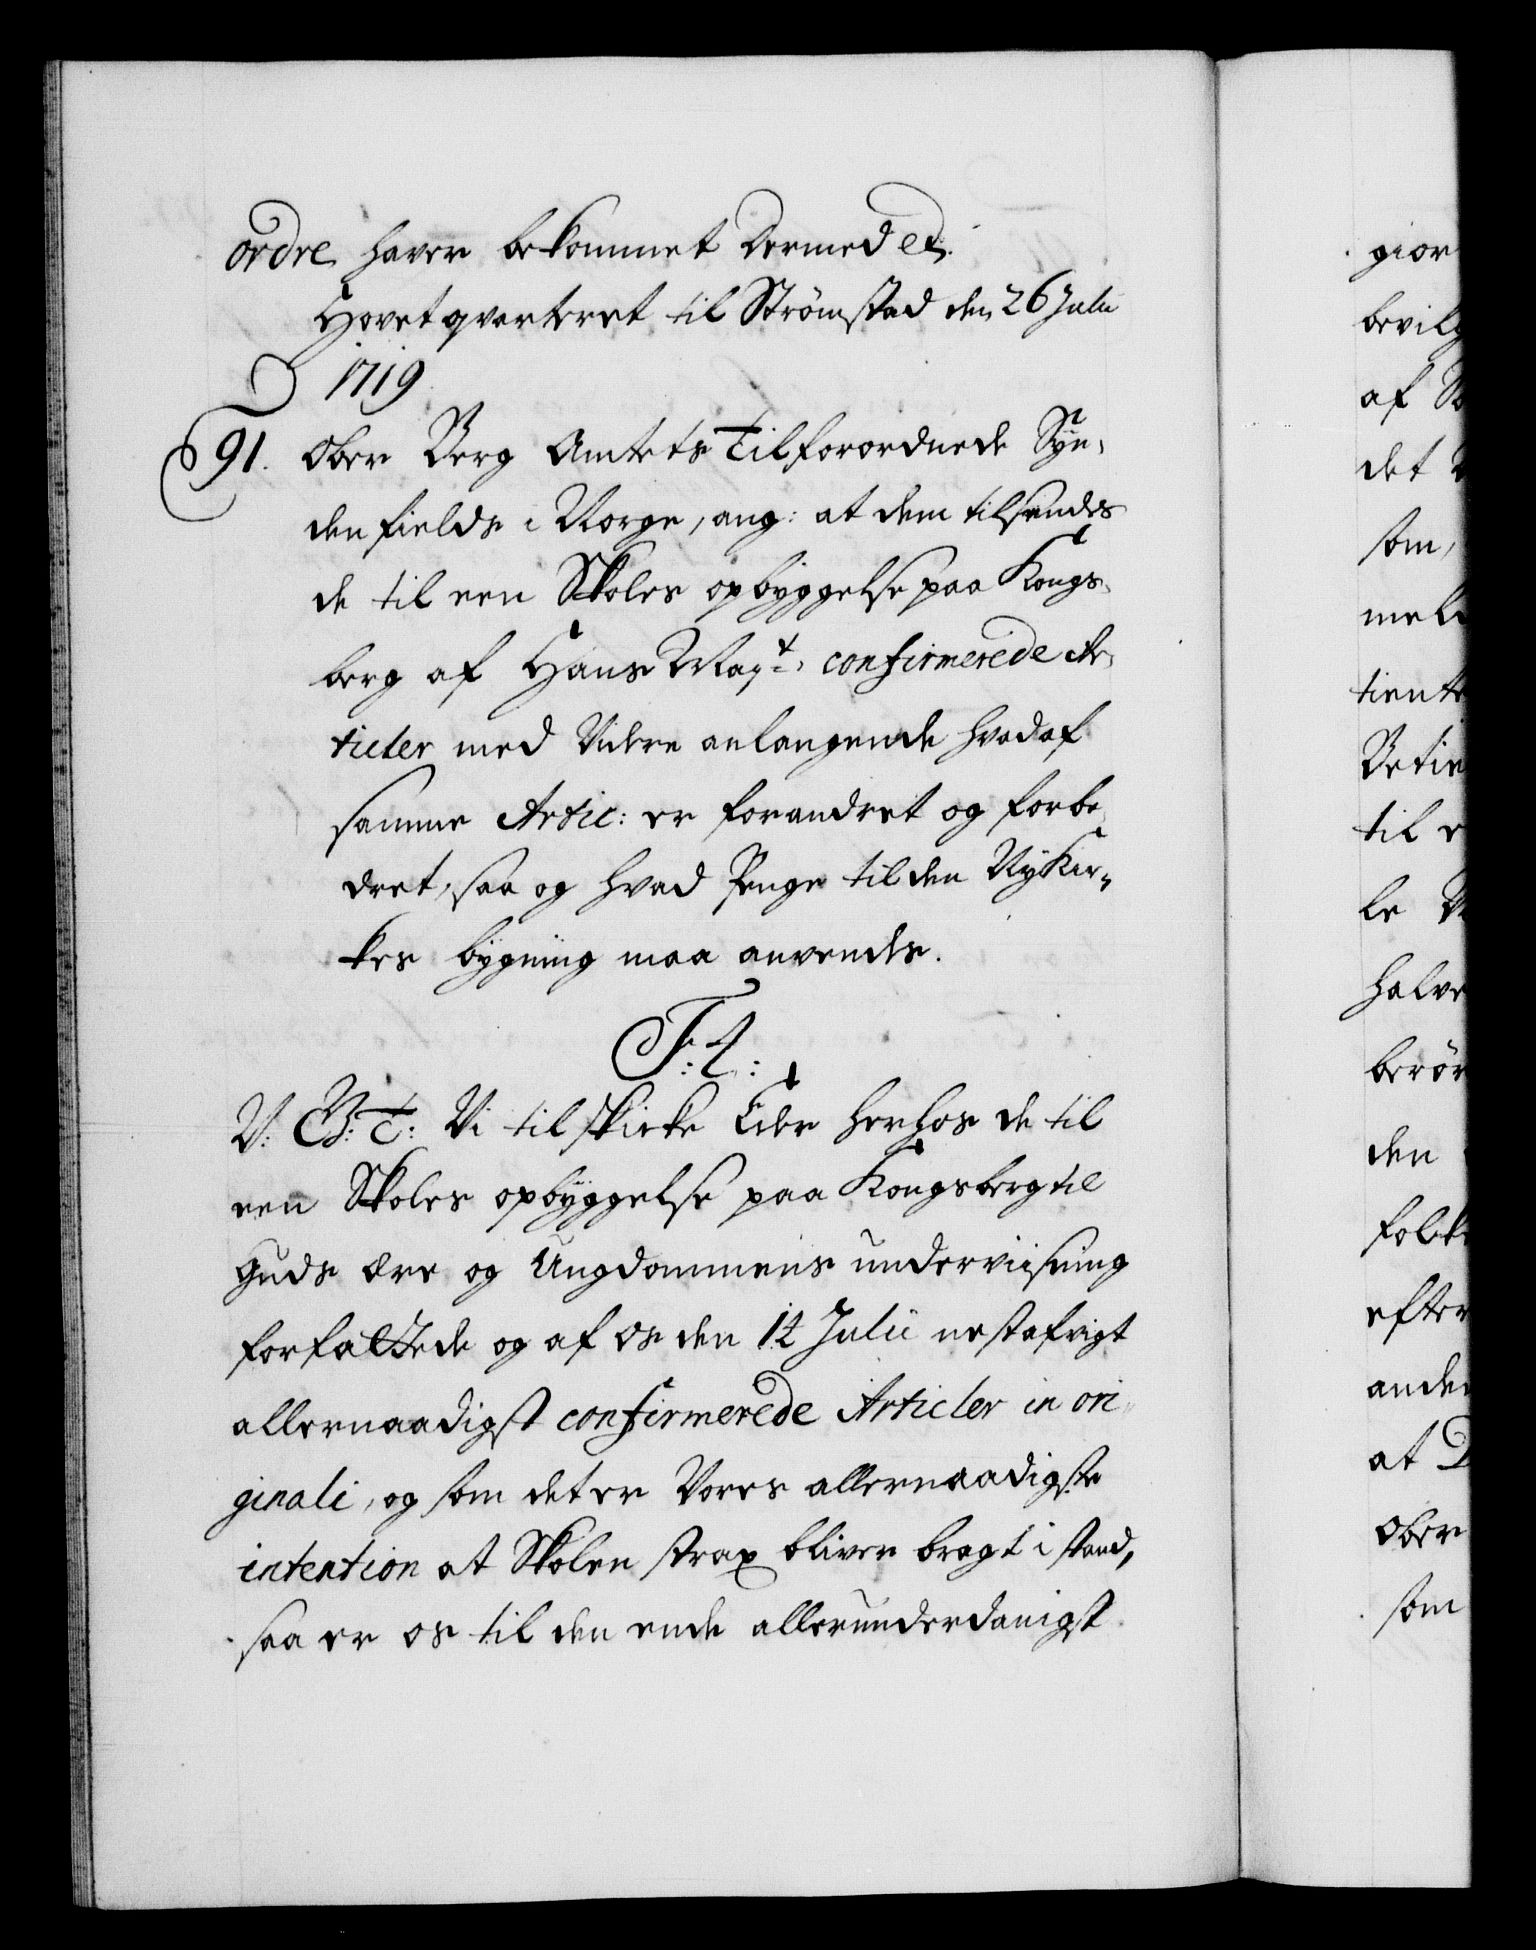 ordre haver bekommet Dermed etc.
Hovetqvarteret til Strømstad den 26 Julii
1719
91. Ober Berg Amtets Tilforordnede Syn-
den fields i Norge, ang: at dem tilsendes
de til een Skoles opbyggelse paa Kongs-
berg af Hans Mayt: confirmerede Ar-
ticler med Videre anlangende hvad af
samme Artic: er forandret og forbe-
dret, saa og hvad Penge til den Ny Kir-
kes bygning maa anvendes.
F: 4:
V: G: T: Vi tilskicke Eder herhos de til
een Skoles opbyggelse paa Kongsberg til
Guds ære og Ungdommens underviisning
forfattede og af os den 14 Julii nestafvigt
allernaadigst confirmerede Articler in ori-
ginali, og som det er Vores allernaadigste
intention at Skolen strax bliver bragt i stand,
saa er os til den ende allerunderdanigst
giør
bevilg
af
det
som,
til
halve
berør
den
folk
efter
at
Ober
som